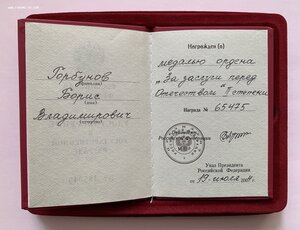 Горбунов
(фамилия)
Борис
(имя)
Владимирович
(отчество)
Награжден (а)
медалью ордена
„За заслуги перед
Отечеством" II степени
Награда № 65425
Президент
Российской Федерации
Указ Президента
Российской Федерации
от 19 июля